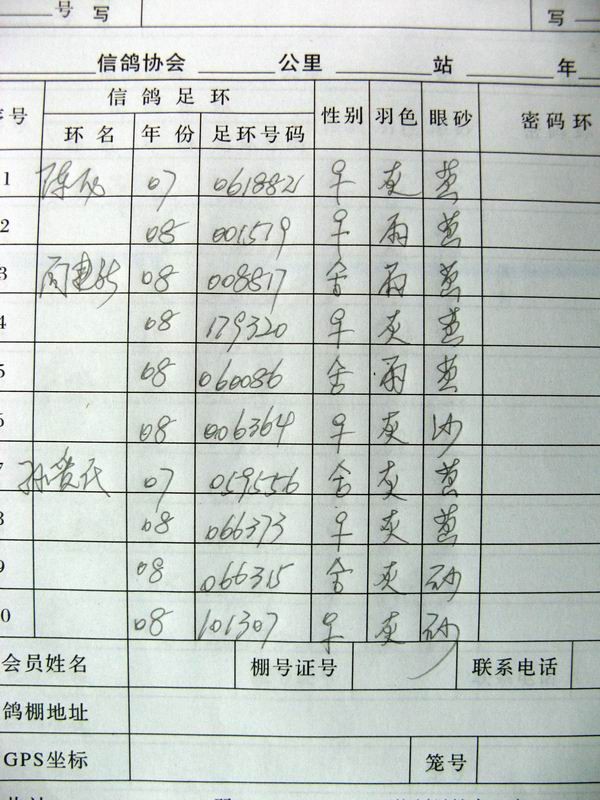 号 写 写
信鸽协会 公里 站 年
号 信鸽足环 性别 羽色 眼砂 密码环
环名 年份 足环号码
1 07 0618821 灰 黄
2 08 001579 雨 黄
3 08 008817 雨 黄
4 08 179320 灰 黄
5 08 060086 雨 黄
6 08 006364 灰 沙
7 07 059556 灰 黄
8 08 066373 灰 黄
9 08 066315 灰 砂
0 08 101307 灰 砂
会员姓名 棚号证号 联系电话
鸽棚地址
GPS坐标 笼号